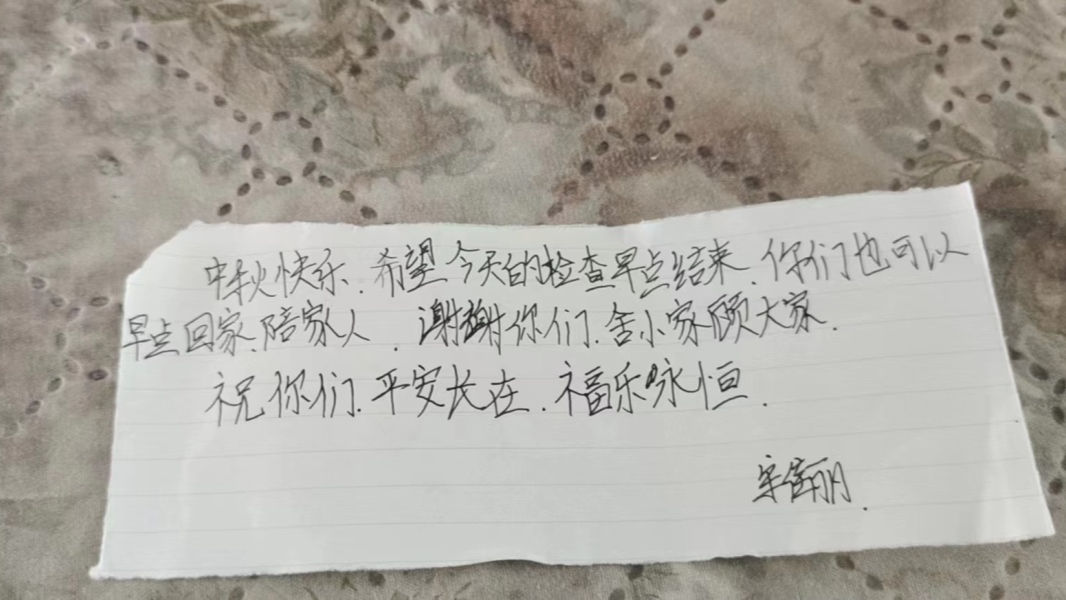 中秋快乐.希望今天的检查早点结束.你们也可以
早点回家.陪家人.谢谢你们.舍小家顾大家.
祝你们.平安长在.福乐永恒.